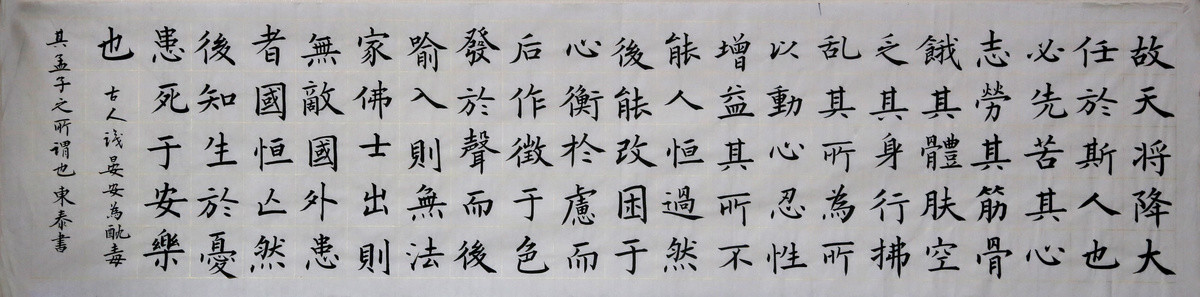 故天将降大
任於斯人也
必先苦其心
志勞其筋骨
餓其體肤空
乏其身行拂
乱其所為所
以動心忍性
增益其所不
能人恒過然
後能改困于
心衡於慮而
后作徵于色
發於聲而後
喻入則無法
家佛士出則
無敵國外患
者國恒亡然
後知生於憂
患死于安樂
也
古人晏安為酖毒
其孟子之所谓也東泰書